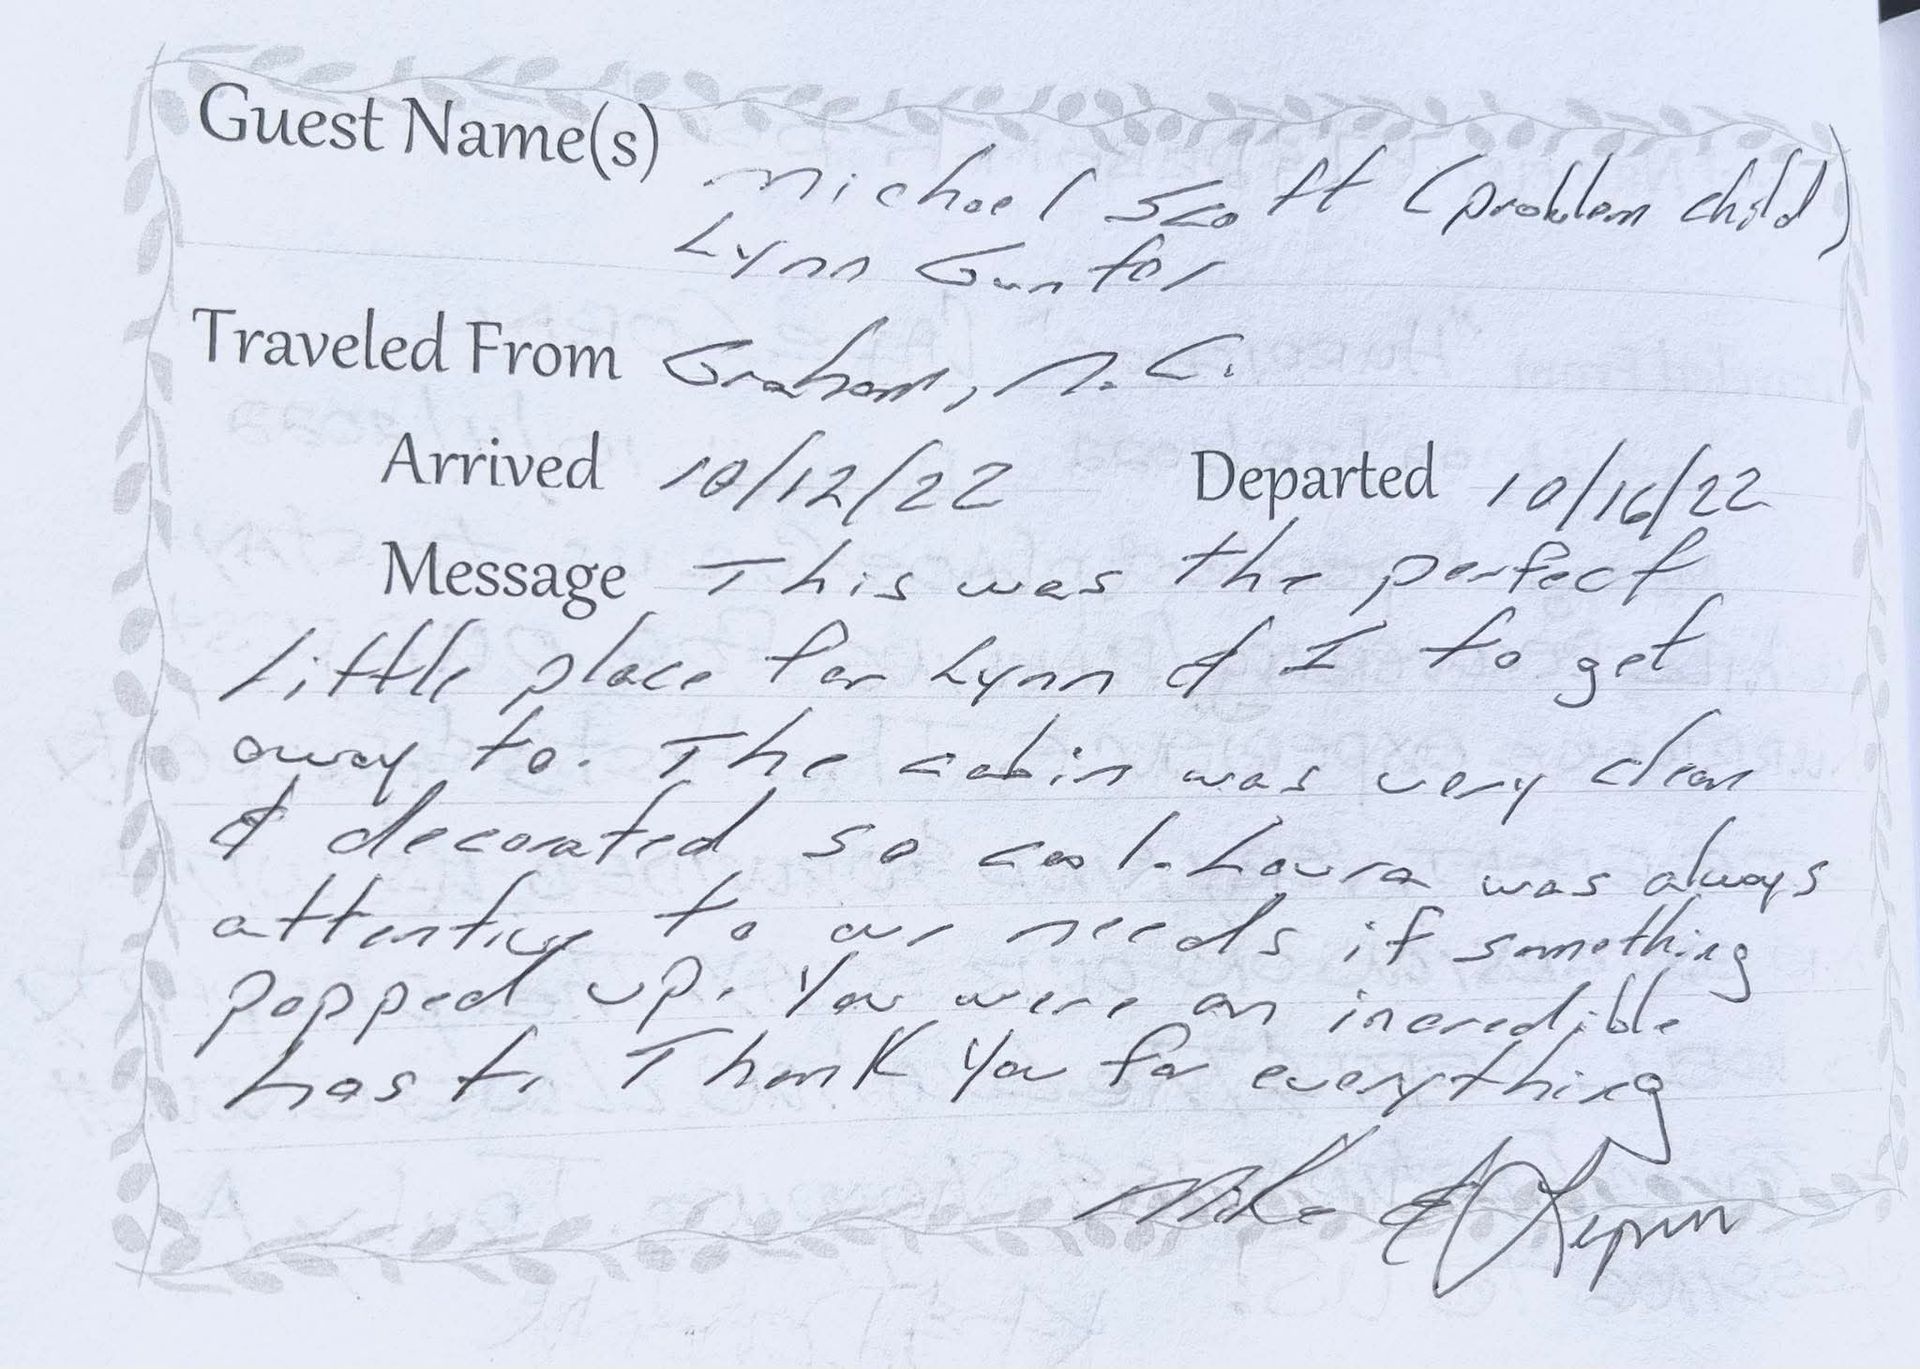 Guest Name(s) Michael Scott (problem child)
Lynn Gunter
Traveled From Graham, N.C.
Arrived 10/12/22 Departed 10/16/22
Message This was the perfect
little place for Lynn & I to get
away to. The cabin was very clean
& decorated so cool. Laura was always
attentive to our needs if something
popped up. You were an incredible
host. Thank you for everything
Mike & Lynn